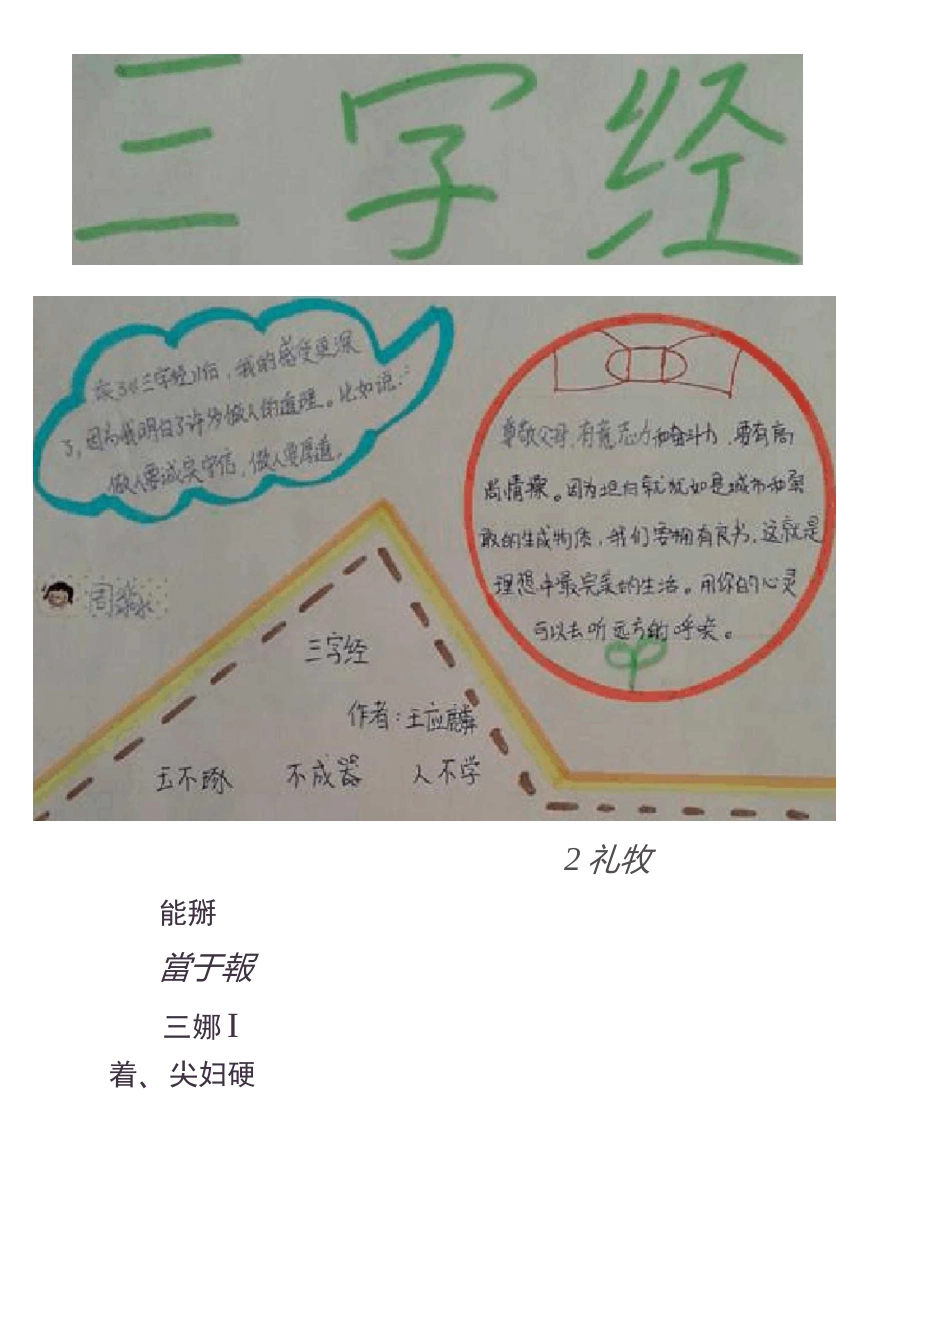 三字经
读了《三字经》后，我的感受更深
了，因为我明白了许多做人的道理。比如说：
做人要诚实守信，做人要厚道。
尊敬父母，有意志力和奋斗力，要有高
尚情操。因为坦白就犹如是城市和
的生成物质，我们要拥有良书，这就是
理想中最完美的生活。用你的心灵
可以去听远方的呼唤。
周淼
三字经
作者：王应麟
玉不琢 不成器 人不学
2 礼牧
能掰
當于報
三娜 I
着、尖妇硬